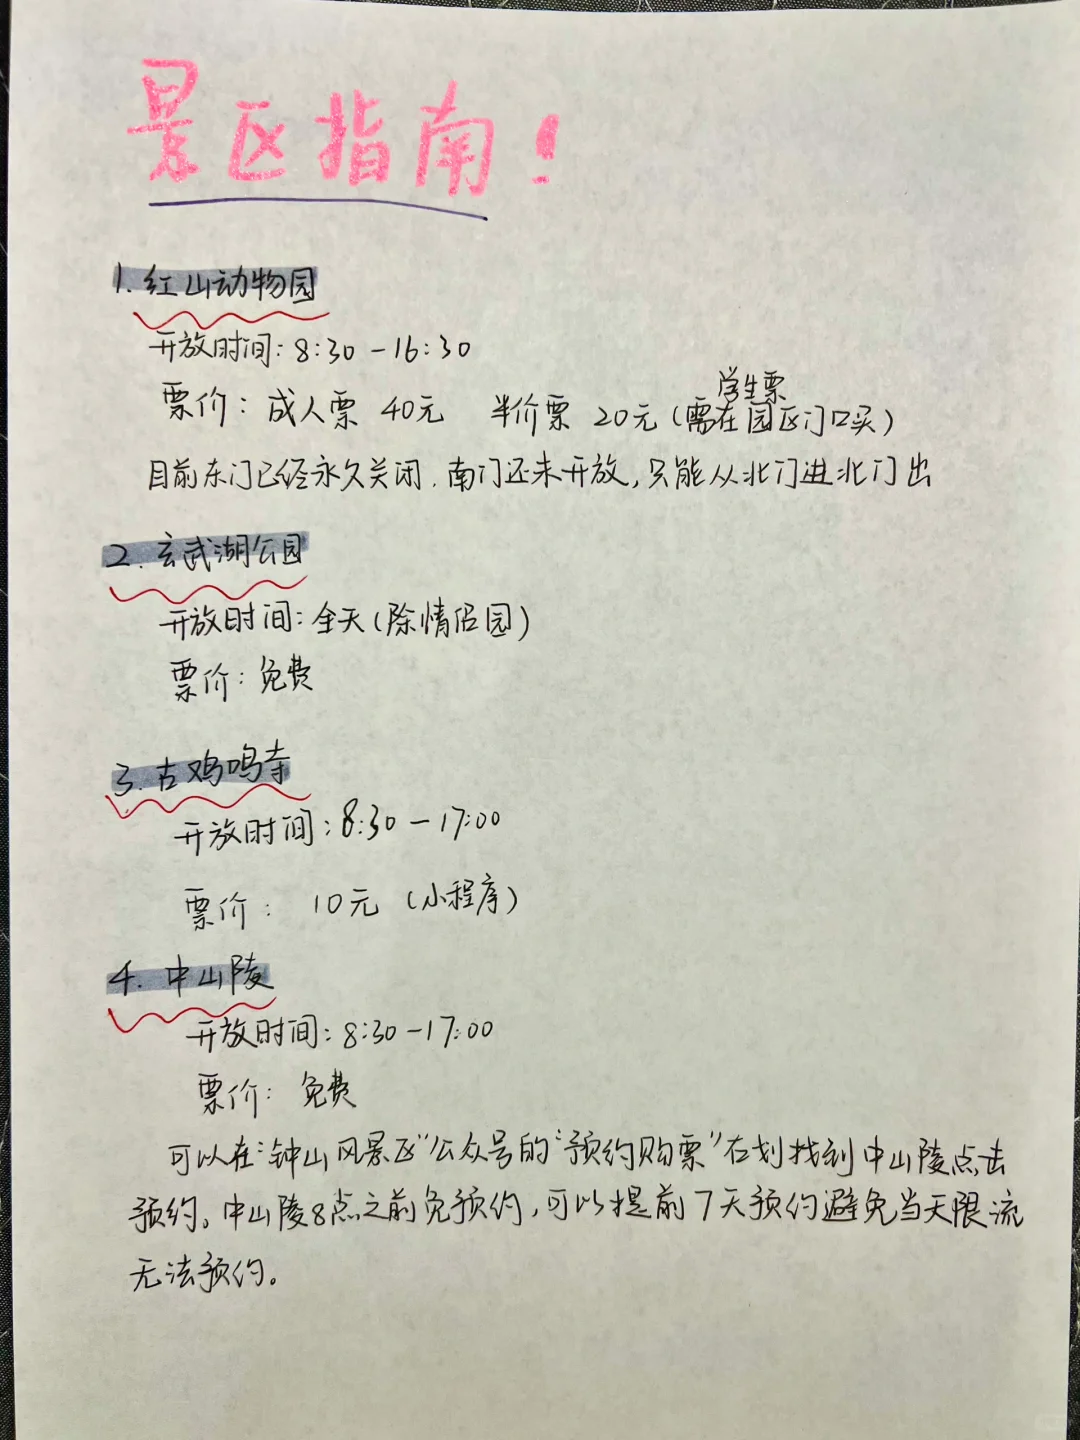 景区指南！
1. 红山动物园
开放时间：8:30-16:30
学生票
票价：成人票 40元 半价票 20元（需在园区门口买）
目前东门已经永久关闭，南门还未开放，只能从北门进北门出
2. 玄武湖公园
开放时间：全天（除情侣园）
票价：免费
3. 古鸡鸣寺
开放时间：8:30-17:00
票价：10元（小程序）
4. 中山陵
开放时间：8:30-17:00
票价：免费
可以在“钟山风景区”公众号的“预约购票”右划找到中山陵点击
预约。中山陵8点之前免预约，可以提前7天预约避免当天限流
无法预约。